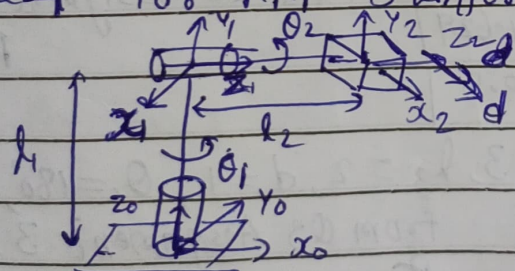 Y₁ θ₂ Y₂ Z₂ d
Z₁
X₁ l₂ x₂ d
l₁ θ₁
z₀ Y₀
x₀